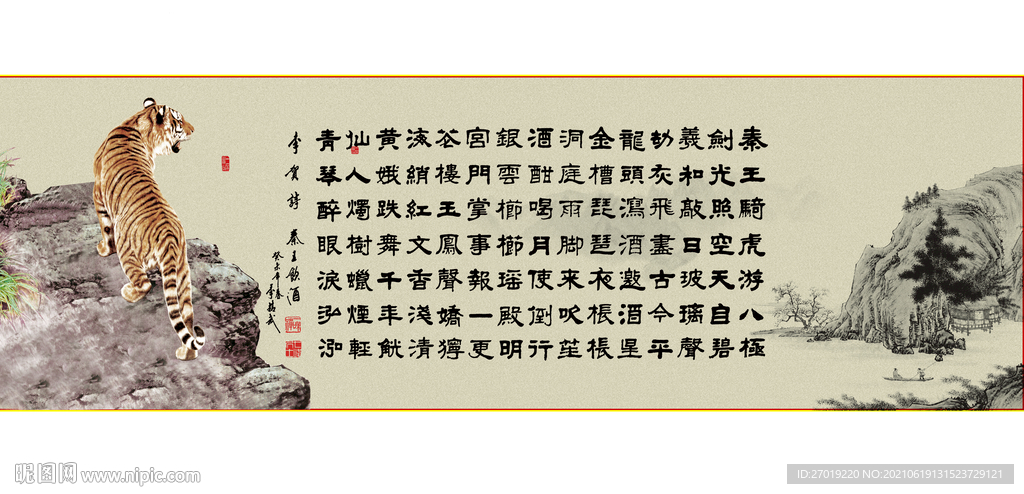 秦王騎虎游八極
劍光照空天自碧
羲和敲日玻璃聲
劫灰飛盡古今平
龍頭瀉酒邀酒星
金槽琵琶夜棖棖
洞庭雨脚來吹笙
酒酣喝月使倒行
銀雲櫛櫛瑶殿明
宮門掌事報一更
花樓玉鳳聲嬌獰
海綃紅文香淺清
黄娥跌舞千年觥
仙人燭樹蠟煙輕
青琴醉眼淚泓泓
李賀詩 秦王飲酒
癸未年春李
昵图网 www.nipic.com
ID:27019220 NO:20210619131523729121